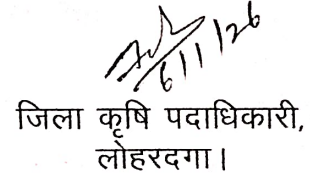 6/1/26
जिला कृषि पदाधिकारी,
लोहरदगा।